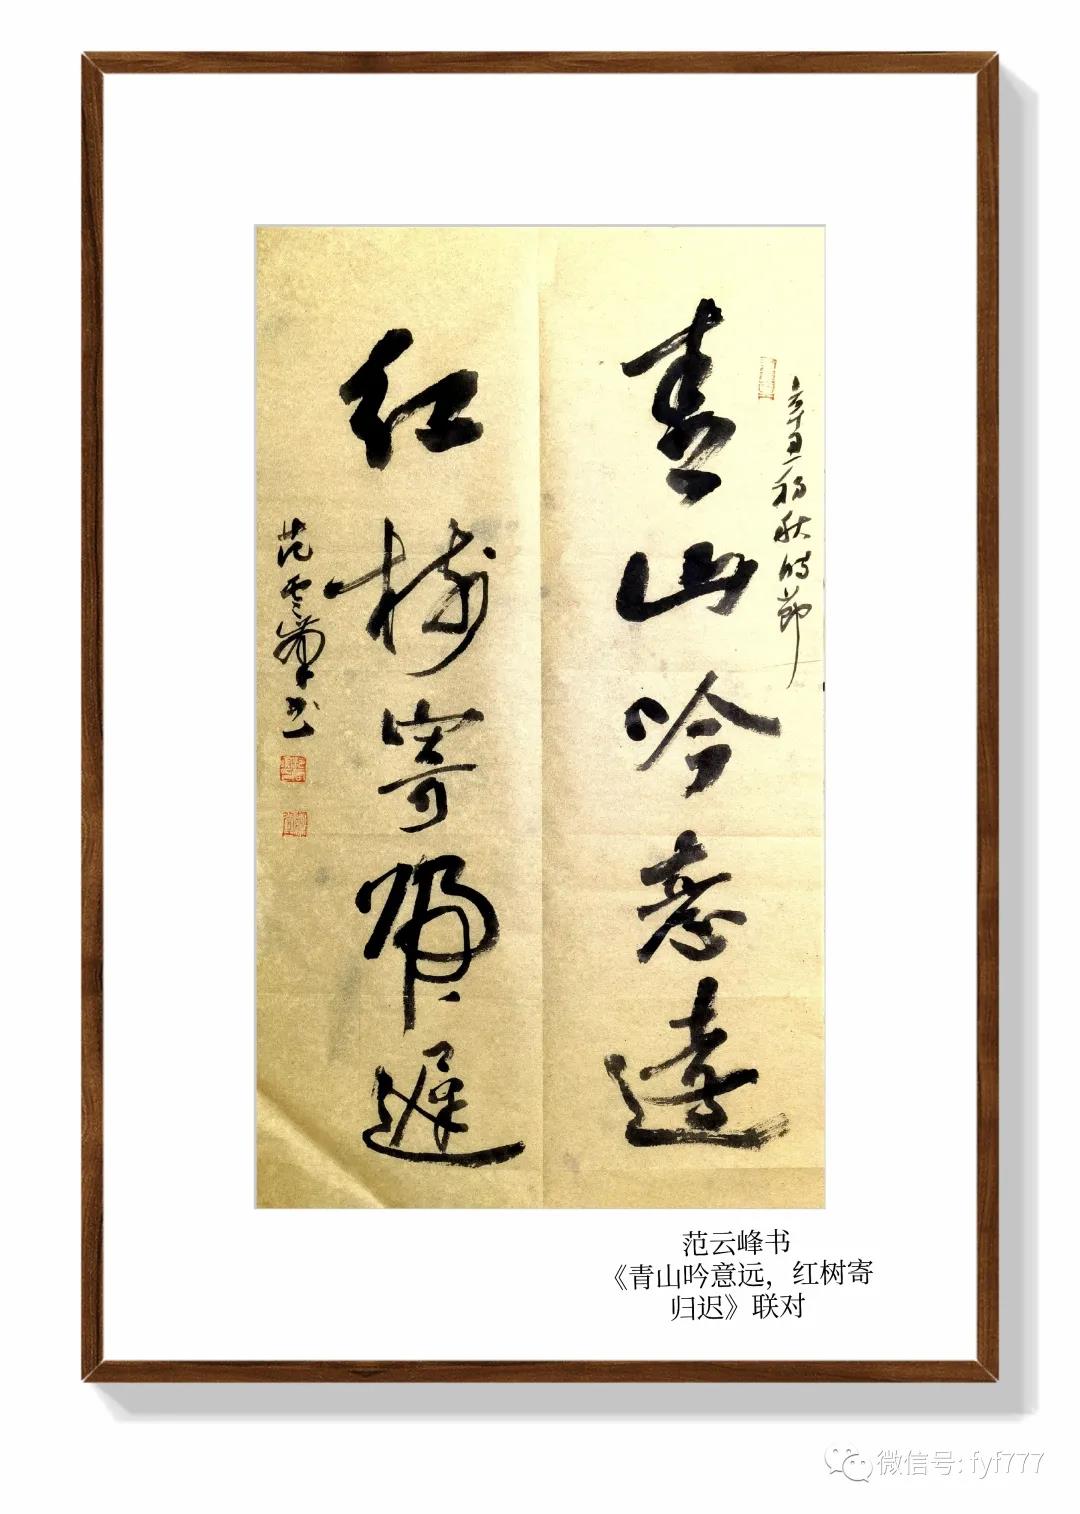 辛丑初秋时节
青山吟意遠
红树寄歸遲
范云峰书
范云峰书
《青山吟意远，红树寄
归迟》联对
微信号: fyf777